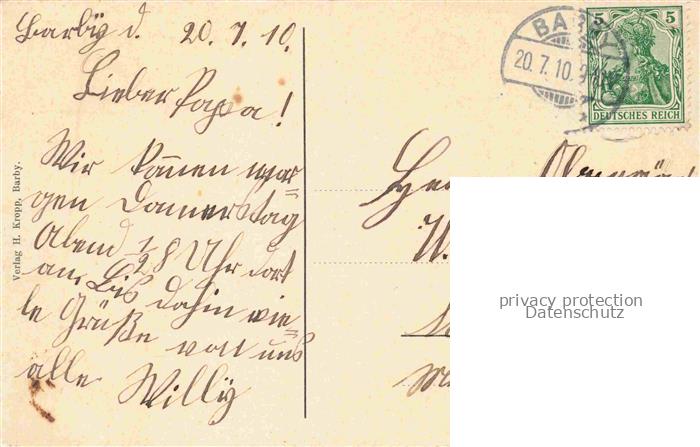 Barby d. 20.7.10.
Lieber Papa!
Wir kommen mor=
gen Donnerstag
Abend 1/2 8 Uhr dort
an. Bis dahin vie=
le Grüße von uns
alle Willy
Verlag H. Kropp, Barby.
BARBY
20.7.10.9
5 5
DEUTSCHES REICH
privacy protection
Datenschutz